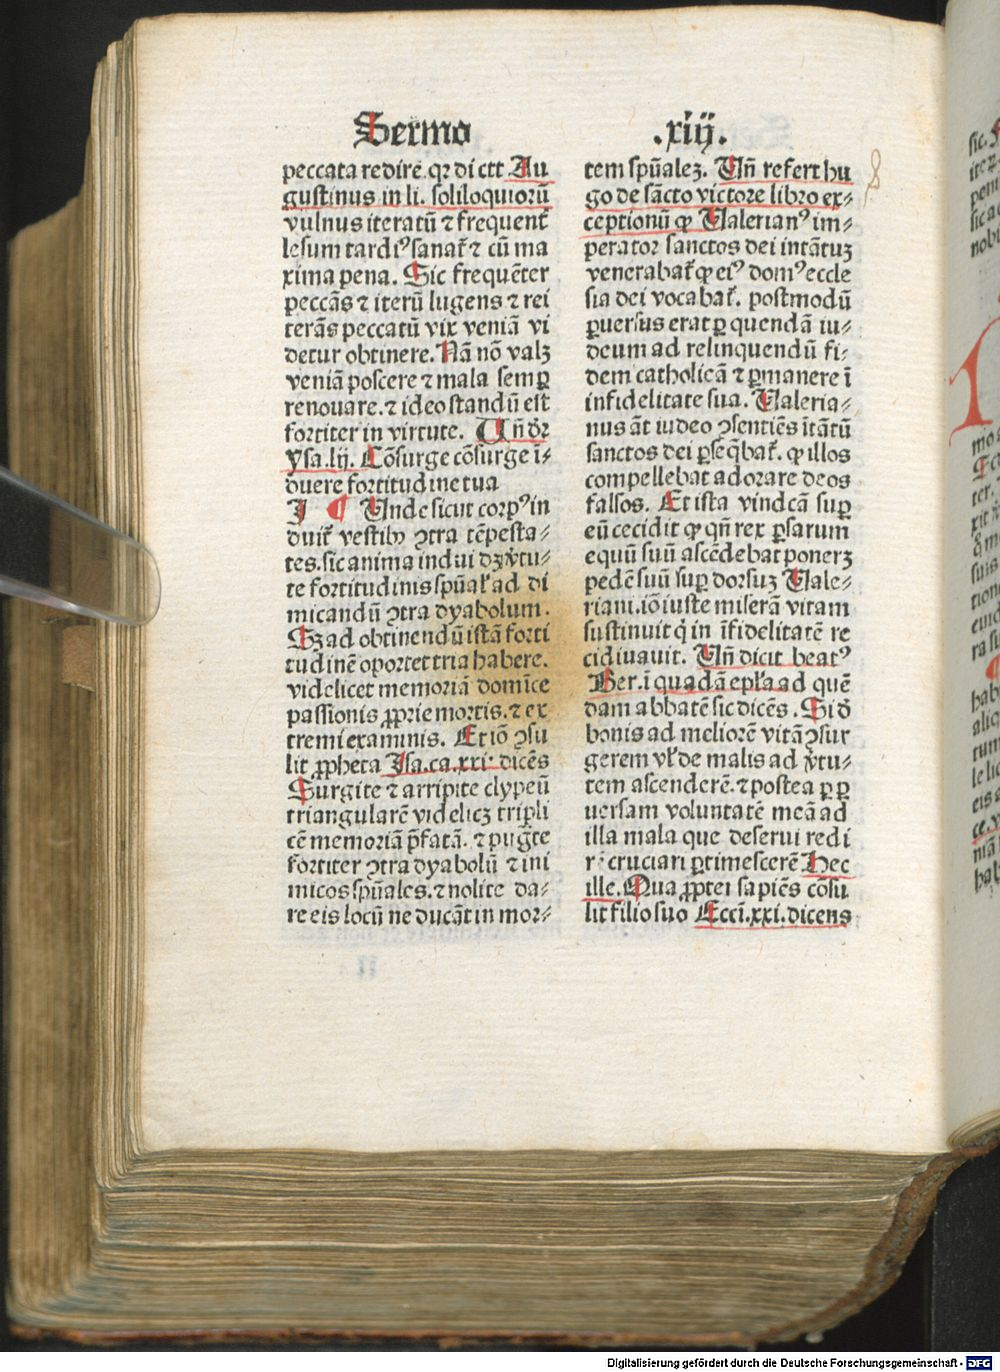 Sermo
.xiij.
peccata redire. qr dicit Au
gustinus in li. soliloquiorū
vulnus iteratū ⁊ frequenter
lesum tardiꝰ sanat̄ ⁊ cū ma
xima pena. Sic frequēter
peccās ⁊ iterū lugens ⁊ rei
terās peccatū vix veniā vi
detur obtinere. Nā nō valꝫ
veniā poscere ⁊ mala semꝑ
renouare. ⁊ ideo standū est
fortiter in virtute. Un̄ dr̄
ysa. lij. Cōsurge cōsurge ī⸗
duere fortitudine tua
I ¶ Unde sicut corpꝰ in
duit̄ vestibꝰ ꝯtra tēpesta⸗
tes. sic anima indui dꝫ v̄tu⸗
te fortitudinis spūal̓ ad di
micandū ꝯtra dyabolum.
Sꝫ ad obtinendū istā forti
tudinē oportet tria habere.
videlicet memoriā domīce
passionis ꝓprie mortis. ⁊ ex
tremi examinis. Et iō ꝯsu
lit ꝓpheta Isa. ca. xxi. dicēs
Surgite ⁊ arripite clypeū
triangularē videlicꝫ tripli
cē memoriā p̄fatā. ⁊ pugte
fortiter ꝯtra dyabolū ⁊ ini
micos spūales. ⁊ nolite da⸗
re eis locū ne ducāt in mor⸗
tem spūalez. Un̄ refert hu
go de sācto victore libro ex⸗
ceptionū ꝙ Ualerianꝰ im⸗
perator sanctos dei intātuꝫ
venerabat̄ ꝙ eiꝰ domꝰ eccle
sia dei vocabat̄. postmodū
ꝑuersus erat ꝑ quendā iu⸗
deum ad relinquendū fi⸗
dem catholicā ⁊ ꝑmanere ī
infidelitate sua. Ualeria⸗
nus āt iudeo ꝯsentiēs ītātū
sanctos dei ꝑseq̄bat̄. ꝙ illos
compellebat adorare deos
falsos. Et ista vindcā suꝑ
eū cecidit ꝙ qn̄ rex ꝑsarum
equū suū ascēdebat ponerꝫ
pedē suū suꝑ dorsuꝫ Uale⸗
riani. iō iuste miserā vitam
sustinuit q̇ in īfidelitatē re
cidiuauit. Un̄ dicit beatꝰ
Ber. ī quadā epl̓a ad quē
dam abbatē sic dicēs. Si d̄
bonis ad meliorē vitā ꝯsur
gerem vl̓ de malis ad v̄tu⸗
tem ascenderē. ⁊ postea ꝑ ꝑ
uersam voluntatē meā ad
illa mala que deserui redi
r cruciari ꝑtimescerē Hec
ille. Qua ꝓptei sapiēs cōsu
lit filio suo Ecci. xxi. dicens
Digitalisierung gefördert durch die Deutsche Forschungsgemeinschaft - DFG